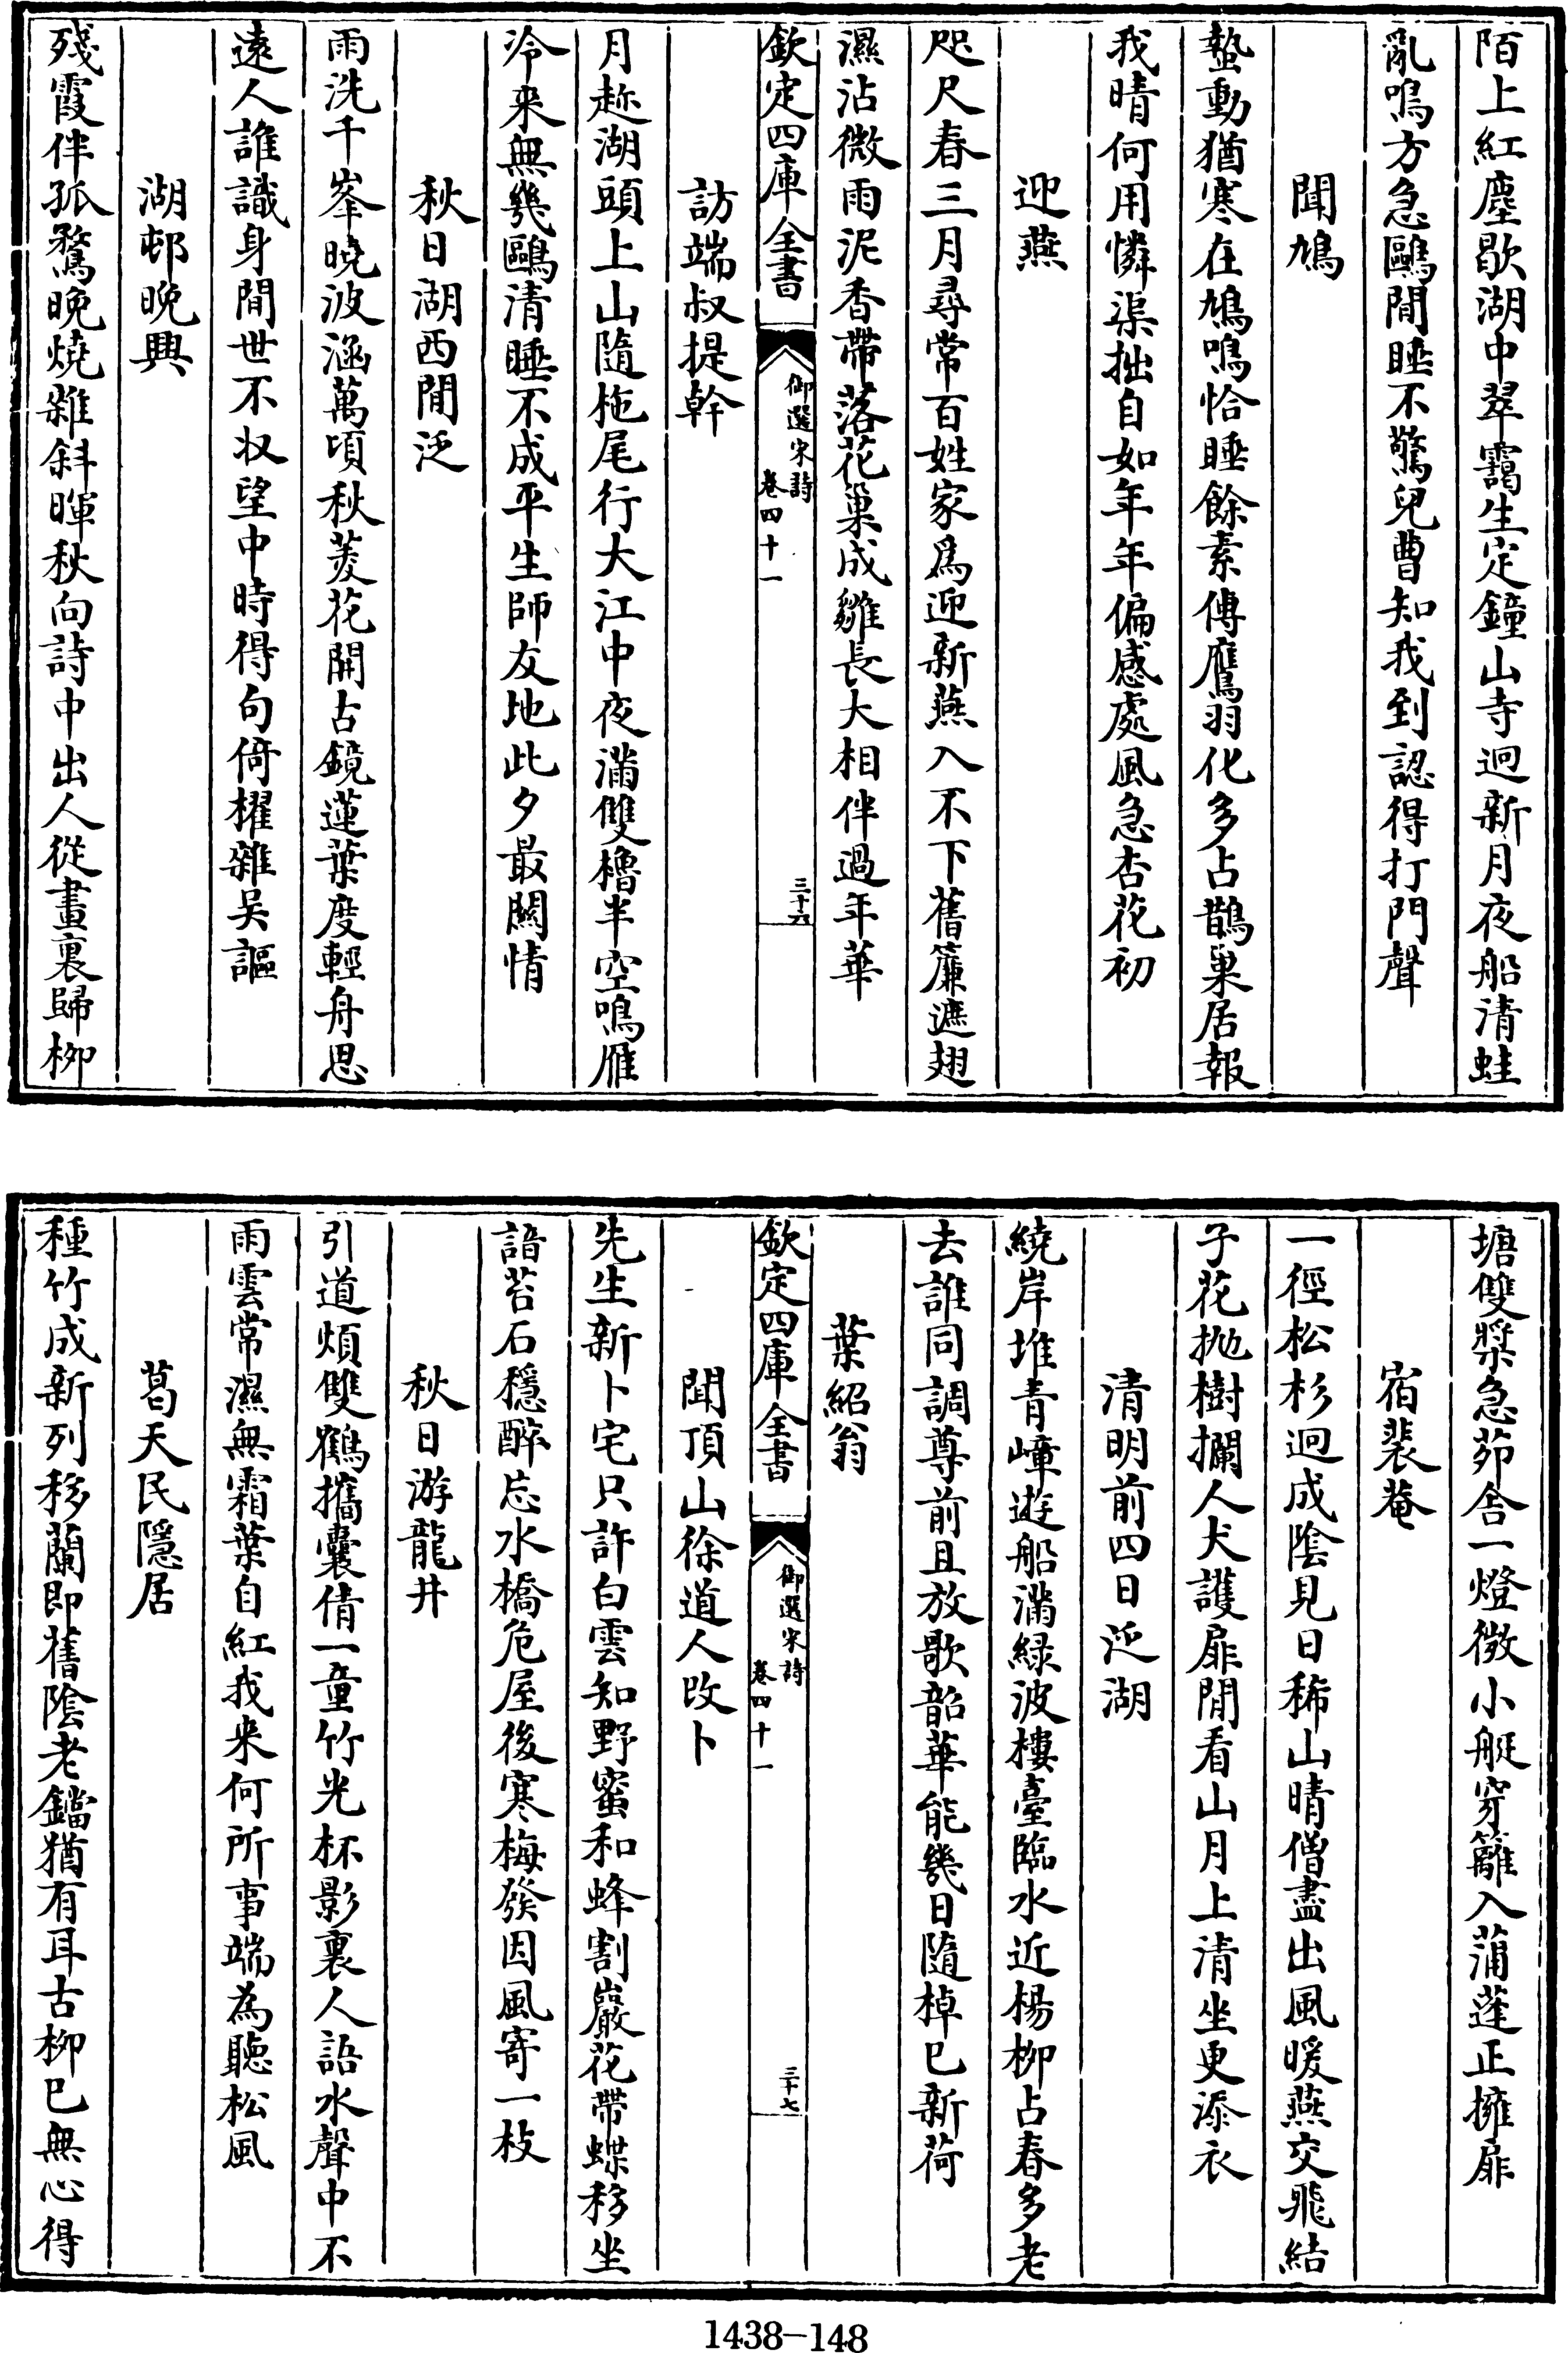 陌上紅塵歇湖中翠靄生定鐘山寺迥新月夜船清蛙
亂鳴方急鷗閒睡不驚兒曹知我到認得打門聲
聞鳩
蟄動猶寒在鳩鳴恰睡餘素傳鷹羽化多占鵲巢居報
我晴何用憐渠拙自如年年偏感處風急杏花初
迎燕
咫尺春三月尋常百姓家爲迎新燕入不下舊簾遮翅
濕沾微雨泥香帶落花巢成雛長大相伴過年華
欽定四庫全書
御選宋詩
卷四十一
三十六
訪端叔提幹
月趂湖頭上山隨柂尾行大江中夜滿雙櫓半空鳴雁
冷來無幾鷗清睡不成平生師友地此夕最關情
秋日湖西閒泛
雨洗千峯曉波涵萬頃秋菱花開古鏡蓮葉度輕舟思
遠人誰識身閒世不收望中時得句倚櫂雜吳謳
湖邨晚興
殘霞伴孤鶩晚燒雜斜暉秋向詩中出人從畫裏歸柳
塘雙槳急茆舍一燈微小艇穿籬入蒲蓬正擁扉
宿裴菴
一徑松杉迥成陰見日稀山晴僧盡出風暖燕交飛結
子花拋樹攔人犬護扉閒看山月上清坐更添衣
清明前四日泛湖
繞岸堆青嶂遊船滿綠波樓臺臨水近楊柳占春多老
去誰同調尊前且放歌韶華能幾日隨棹已新荷
葉紹翁
欽定四庫全書
御選宋詩
卷四十一
三十七
聞頂山徐道人改卜
先生新卜宅只許白雲知野蜜和蜂割巖花帶蝶移坐
諳苔石穩醉忘水橋危屋後寒梅發因風寄一枝
秋日游龍井
引道煩雙鶴攜囊倩一童竹光杯影裏人語水聲中不
雨雲常濕無霜葉自紅我來何所事端為聽松風
葛天民隱居
種竹成新列移蘭即舊陰老鐺猶有耳古柳已無心得
1438-148